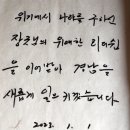 위기에서 나라를 구하신
장군님의 위대한 리더쉽
을 이어받아 경남을
새롭게 일으키겠습니다
2023.